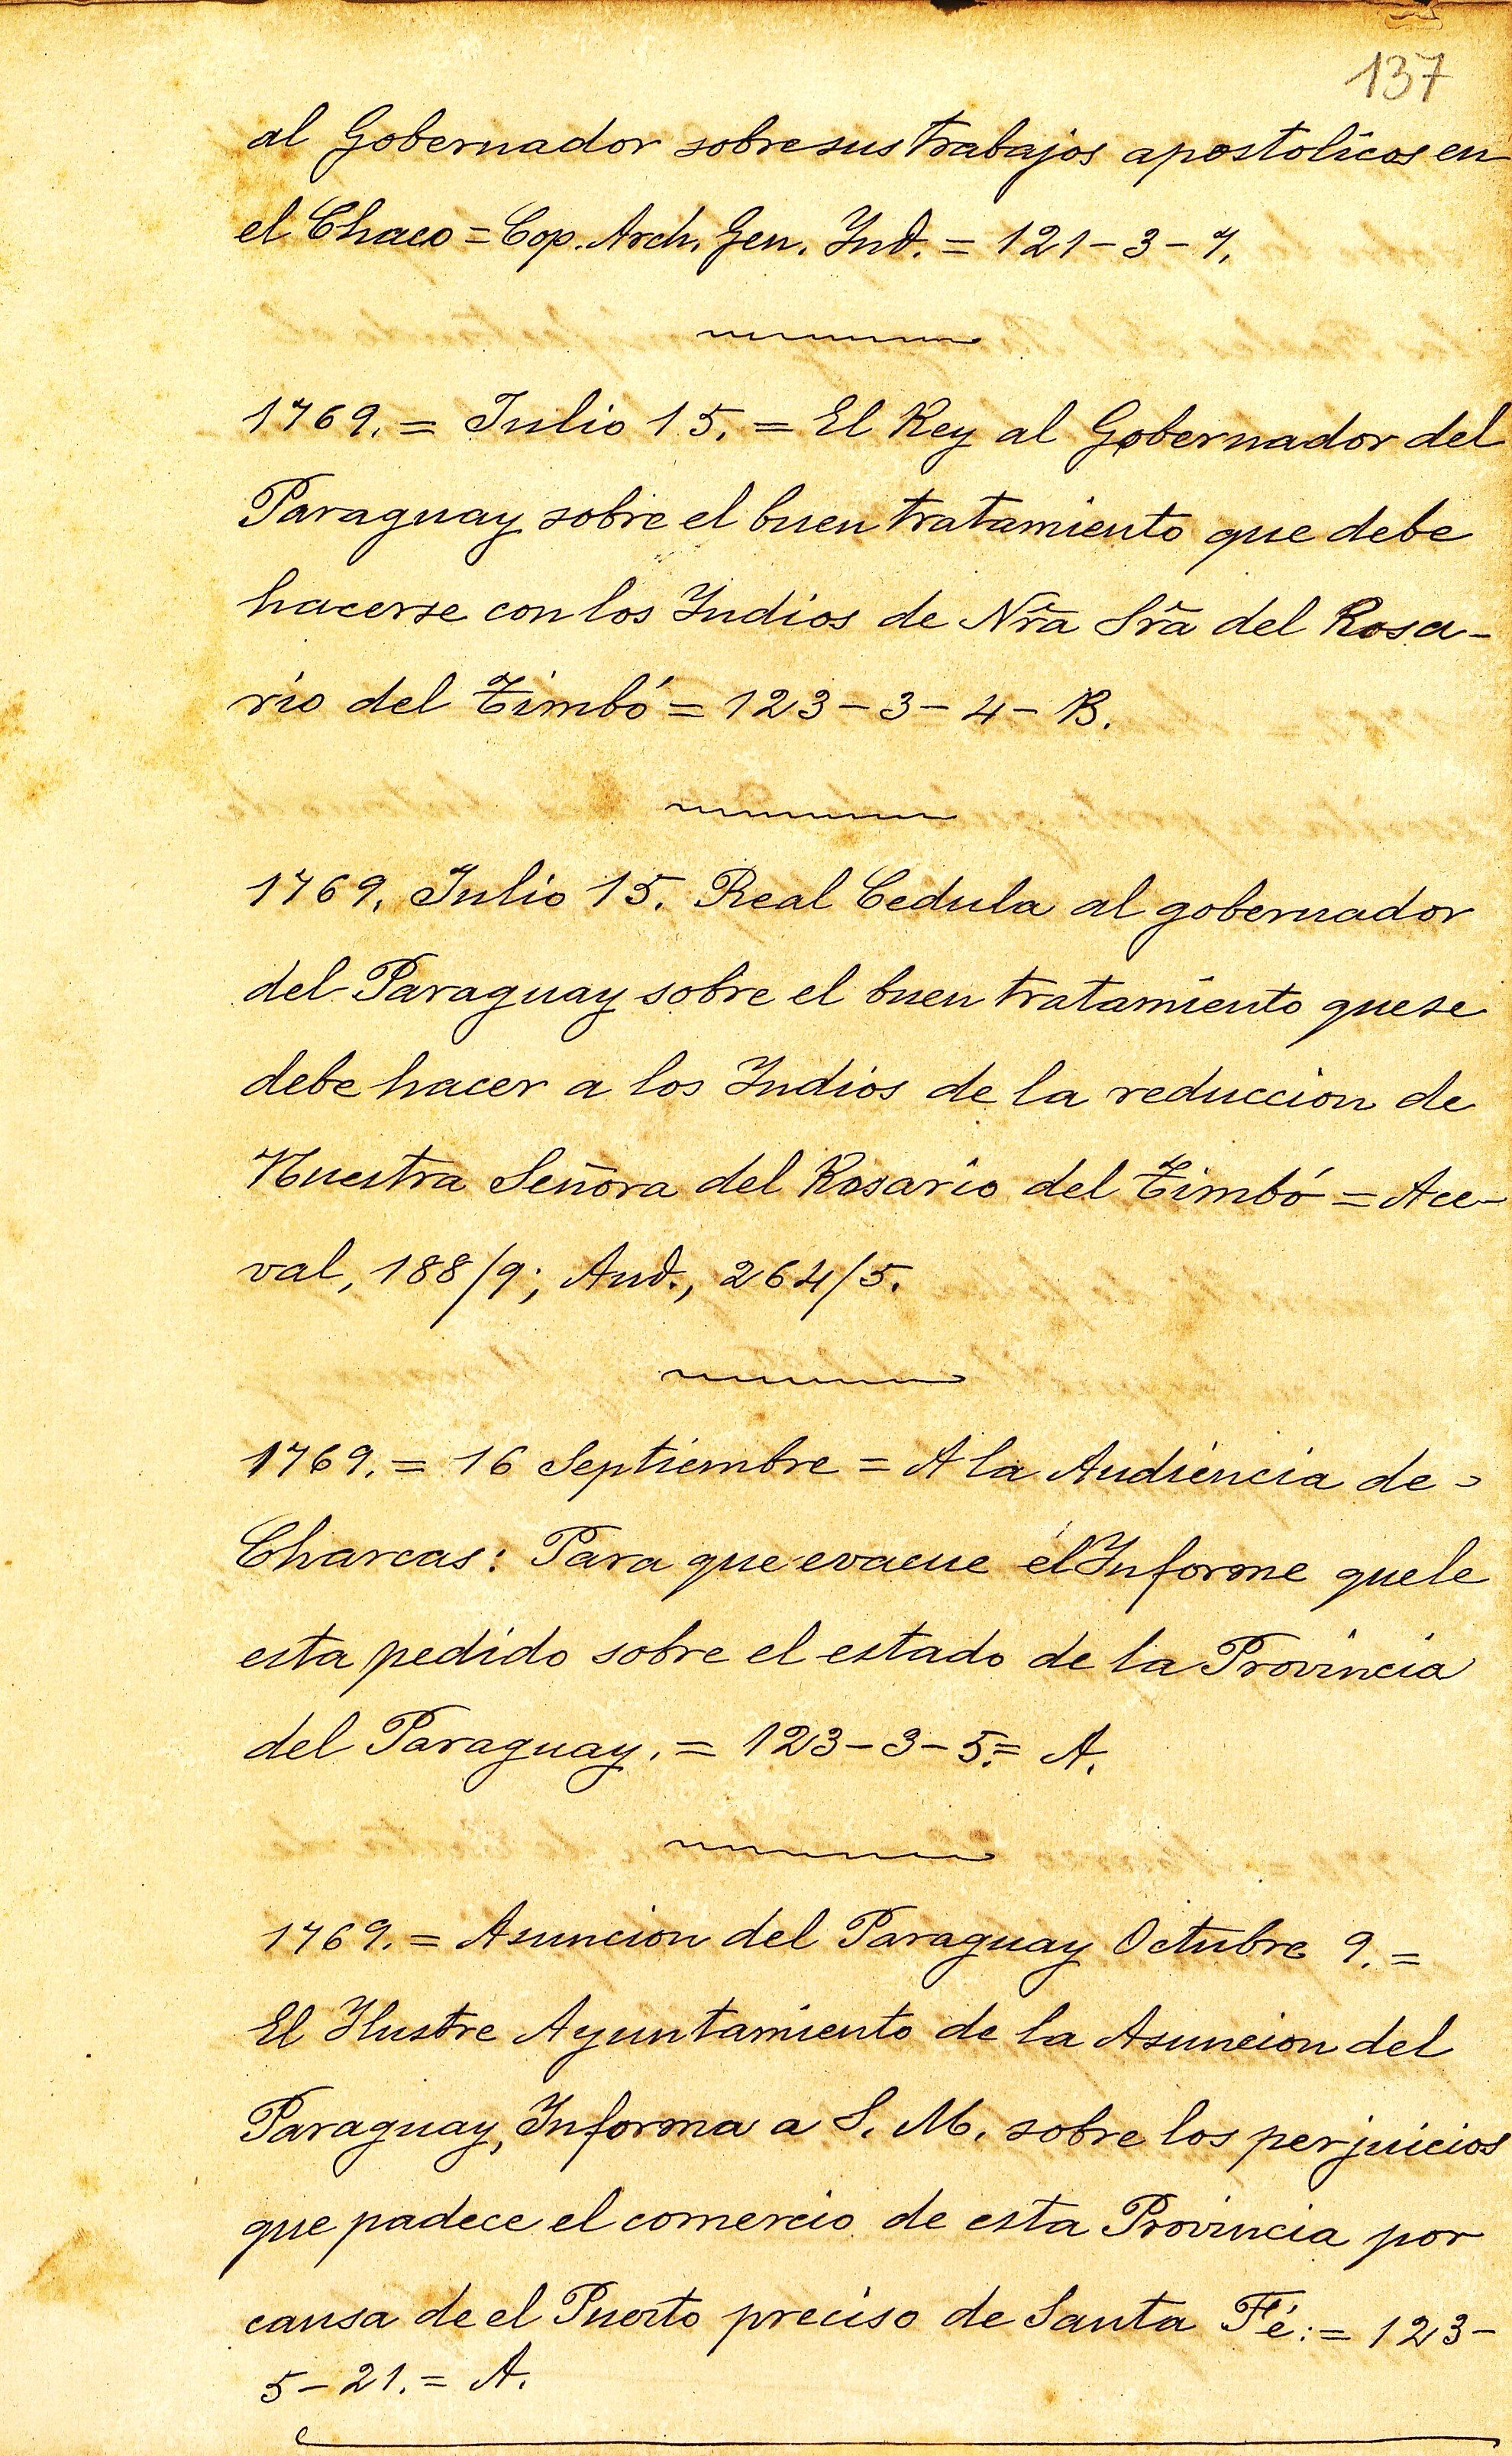 137
al Gobernador sobre sus trabajos apostolicos en
el Chaco = Cop. Arch. Gen. Ind. = 121-3-7.
1769. = Julio 15. = El Rey al Gobernador del
Paraguay sobre el buen tratamiento que debe
hacerse con los Indios de Nrã Srã del Rosa-
rio del Timbó = 123-3-4-B.
1769. Julio 15. Real Cedula al gobernador
del Paraguay sobre el buen tratamiento que se
debe hacer a los Indios de la reduccion de
Nuestra Señora del Rosario del Timbó = Ace-
val, 188/9; Aud., 264/5.
1769. = 16 Septiembre = A la Audiencia de
Charcas: Para que evacue el Informe que le
esta pedido sobre el estado de la Provincia
del Paraguay. = 123-3-5. = A.
1769. = Asuncion del Paraguay Octubre 9. =
El Ilustre Ayuntamiento de la Asuncion del
Paraguay, Informa a S. M. sobre los perjuicios
que padece el comercio de esta Provincia por
causa de el Puerto preciso de Santa Fé: = 123-
5-21. = A.